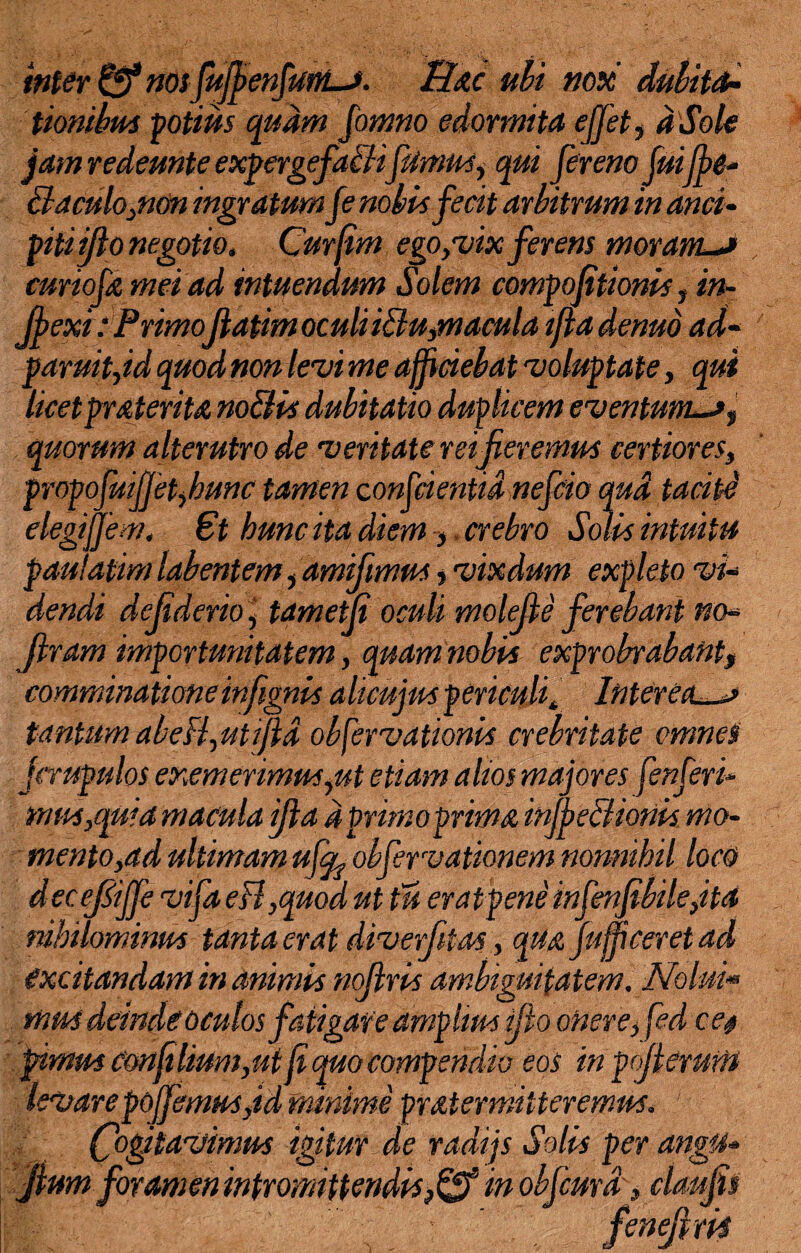 inter & nos suspensum. Hæc ubi nox dubita-
tionibus potiùs quàm somno edormita esset, à Sole
jam redeunte expergefacti sumus, qui sereno suispe-
ctaculo,non ingratum se nobis fecit arbitrum in anci-
piti isto negotio. Cursim ego,vix ferens moram
curiosæ mei ad intuendum Solem compositionis, in-
spexi: Primo statim oculi ictu,macula ista denuò ad-
paruit,id quod non levi me afficiebat voluptate, qui
licet præteritæ noctis dubitatio duplicem eventum,
quorum alterutro de veritate rei fieremus certiores,
proposuisset,hunc tamen conscientiâ nescio quâ tacitè
elegissem. Et hunc ita diem, crebro Solis intuitu
paulatim labentem, amisimus, vixdum expleto vi-
dendi desiderio, tametsi oculi molestè ferebant no-
stram importunitatem, quam nobis exprobrabant,
comminatione insignis alicujus periculi. Interea
tantum abest,ut istâ observationis crebritate omnes
scrupulos exemerimus,ut etiam alios majores senseri-
mus,quia macula ista à primo primæ inspectionis mo-
mento,ad ultimam usq; observationem nonnihil loco
decessisse visa est,quod ut tū erat penè insensibile,ita
nihilominus tanta erat diversitas, quæ sufficeret ad
excitandam in animis nostris ambiguitatem. Nolui-
mus deinde oculos fatigare amplius isto onere, sed ce-
pimus consilium,ut si quo compendio eos in posterum
levare possemus,id minimè prætermitteremus.
Cogitavimus igitur de radijs Solis per angu-
stum foramen intromittendis,& in obscurâ, clausis
fenestris